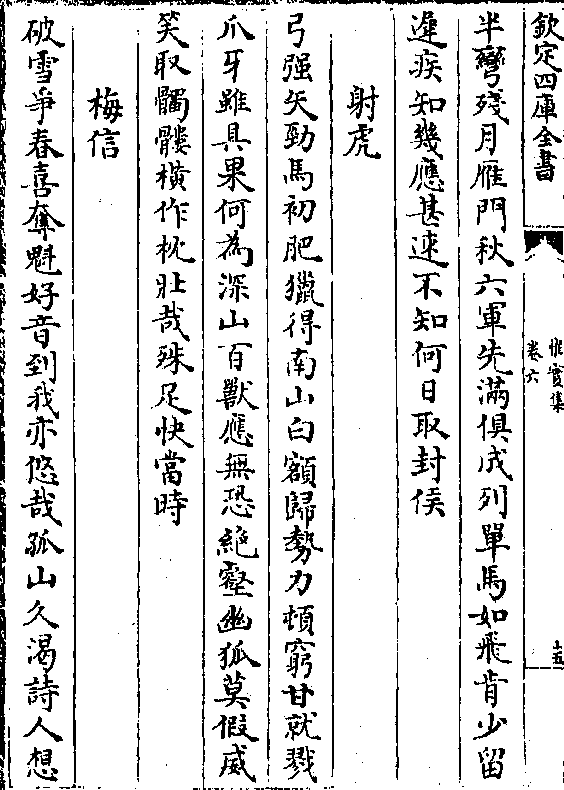 欽定四庫全書
惟實集
卷六
十五
半彎殘月雁門秋六軍先滿俱成列單馬如飛肯少留
違疾知幾應甚速不知何日取封侯
射虎
弓强矢勁馬初肥獵得南山白額歸勢力頓窮甘就戮
爪牙雖具果何為深山百獸應無恐絶壑幽狐莫假威
笑取髑髏横作枕壯哉殊足快當時
梅信
破雪爭春喜奪魁好音到我亦悠哉孤山久渴詩人想